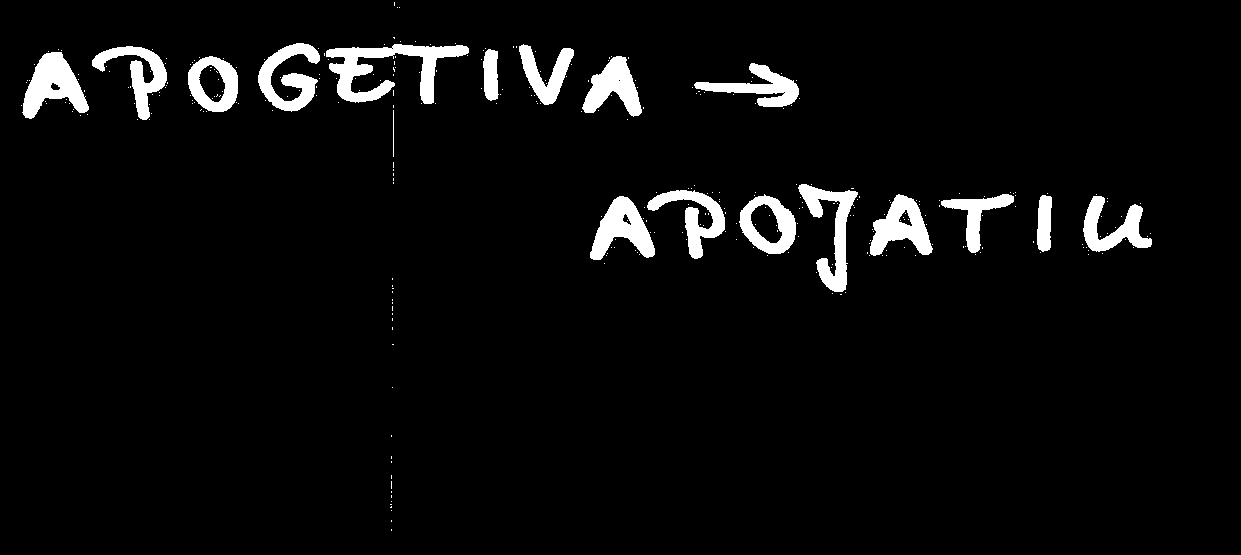 APOGETIVA →
APOJATIU